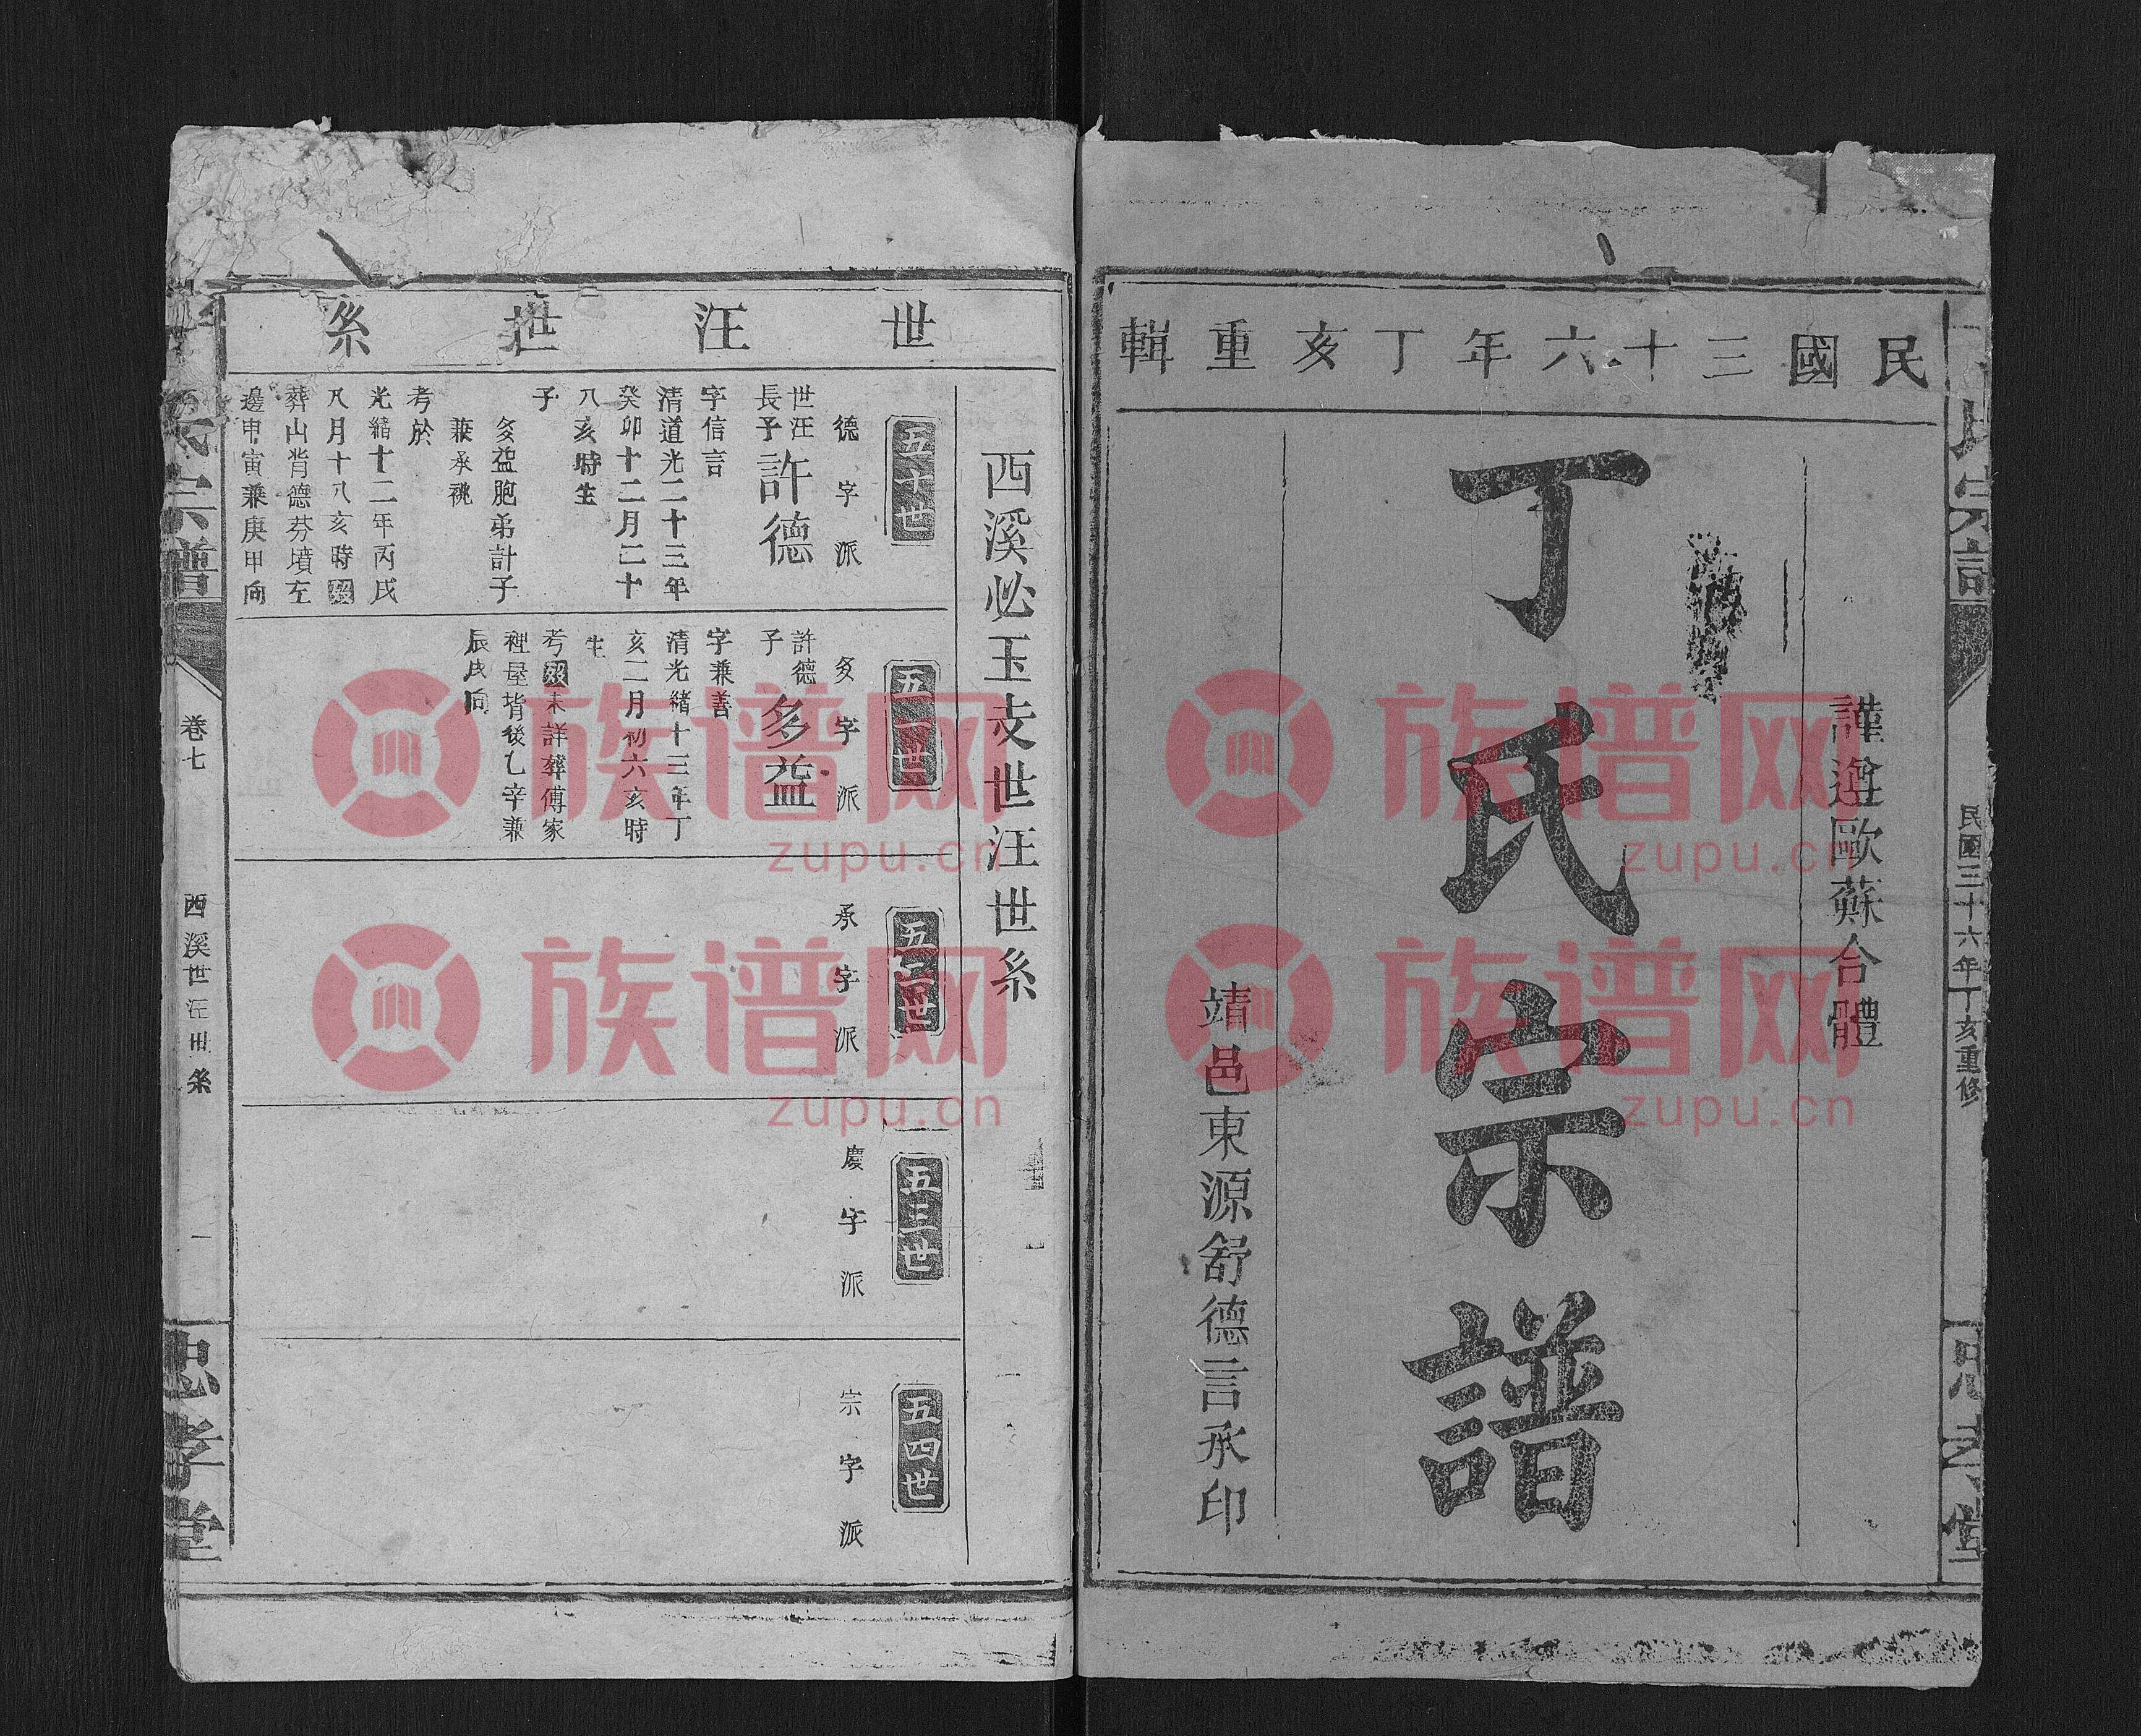 民國三十六年丁亥重輯
謹遵歐蘇合體
丁氏宗譜
靖邑東源舒德言承印
民國三十六年丁亥重修
世汪世系
西溪必玉支世汪世系
五十世
德字派
世汪
長子
許德
字信言
清道光二十三年
癸卯十二月二十
八亥時生
子
多益胞弟計子
兼承祧
考於
光緒十二年丙戌
八月十八亥時歿
葬山背德芬墳左
邊申寅兼庚甲向
五一世
多字派
許德
子
多益
字兼善
清光緒十三年丁
亥二月初六亥時
生
考歿未詳葬傅家
裡屋背後乙辛兼
辰戌向
五二世
承字派
五三世
慶字派
五四世
宗字派
氏宗譜
卷七
西溪世汪世系
一
忠孝堂
族谱网
zupu.cn
族谱网
zupu.cn
族谱网
zupu.cn
族谱网
zupu.cn